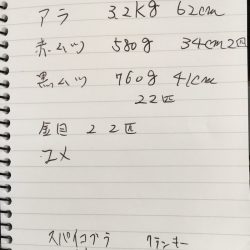 アラ 3.2Kg 62cm
赤ムツ 580g 34cm 2匹
黒ムツ 760g 41cm
22匹
金目 22匹
ユメ
スパイコブラ クランキー